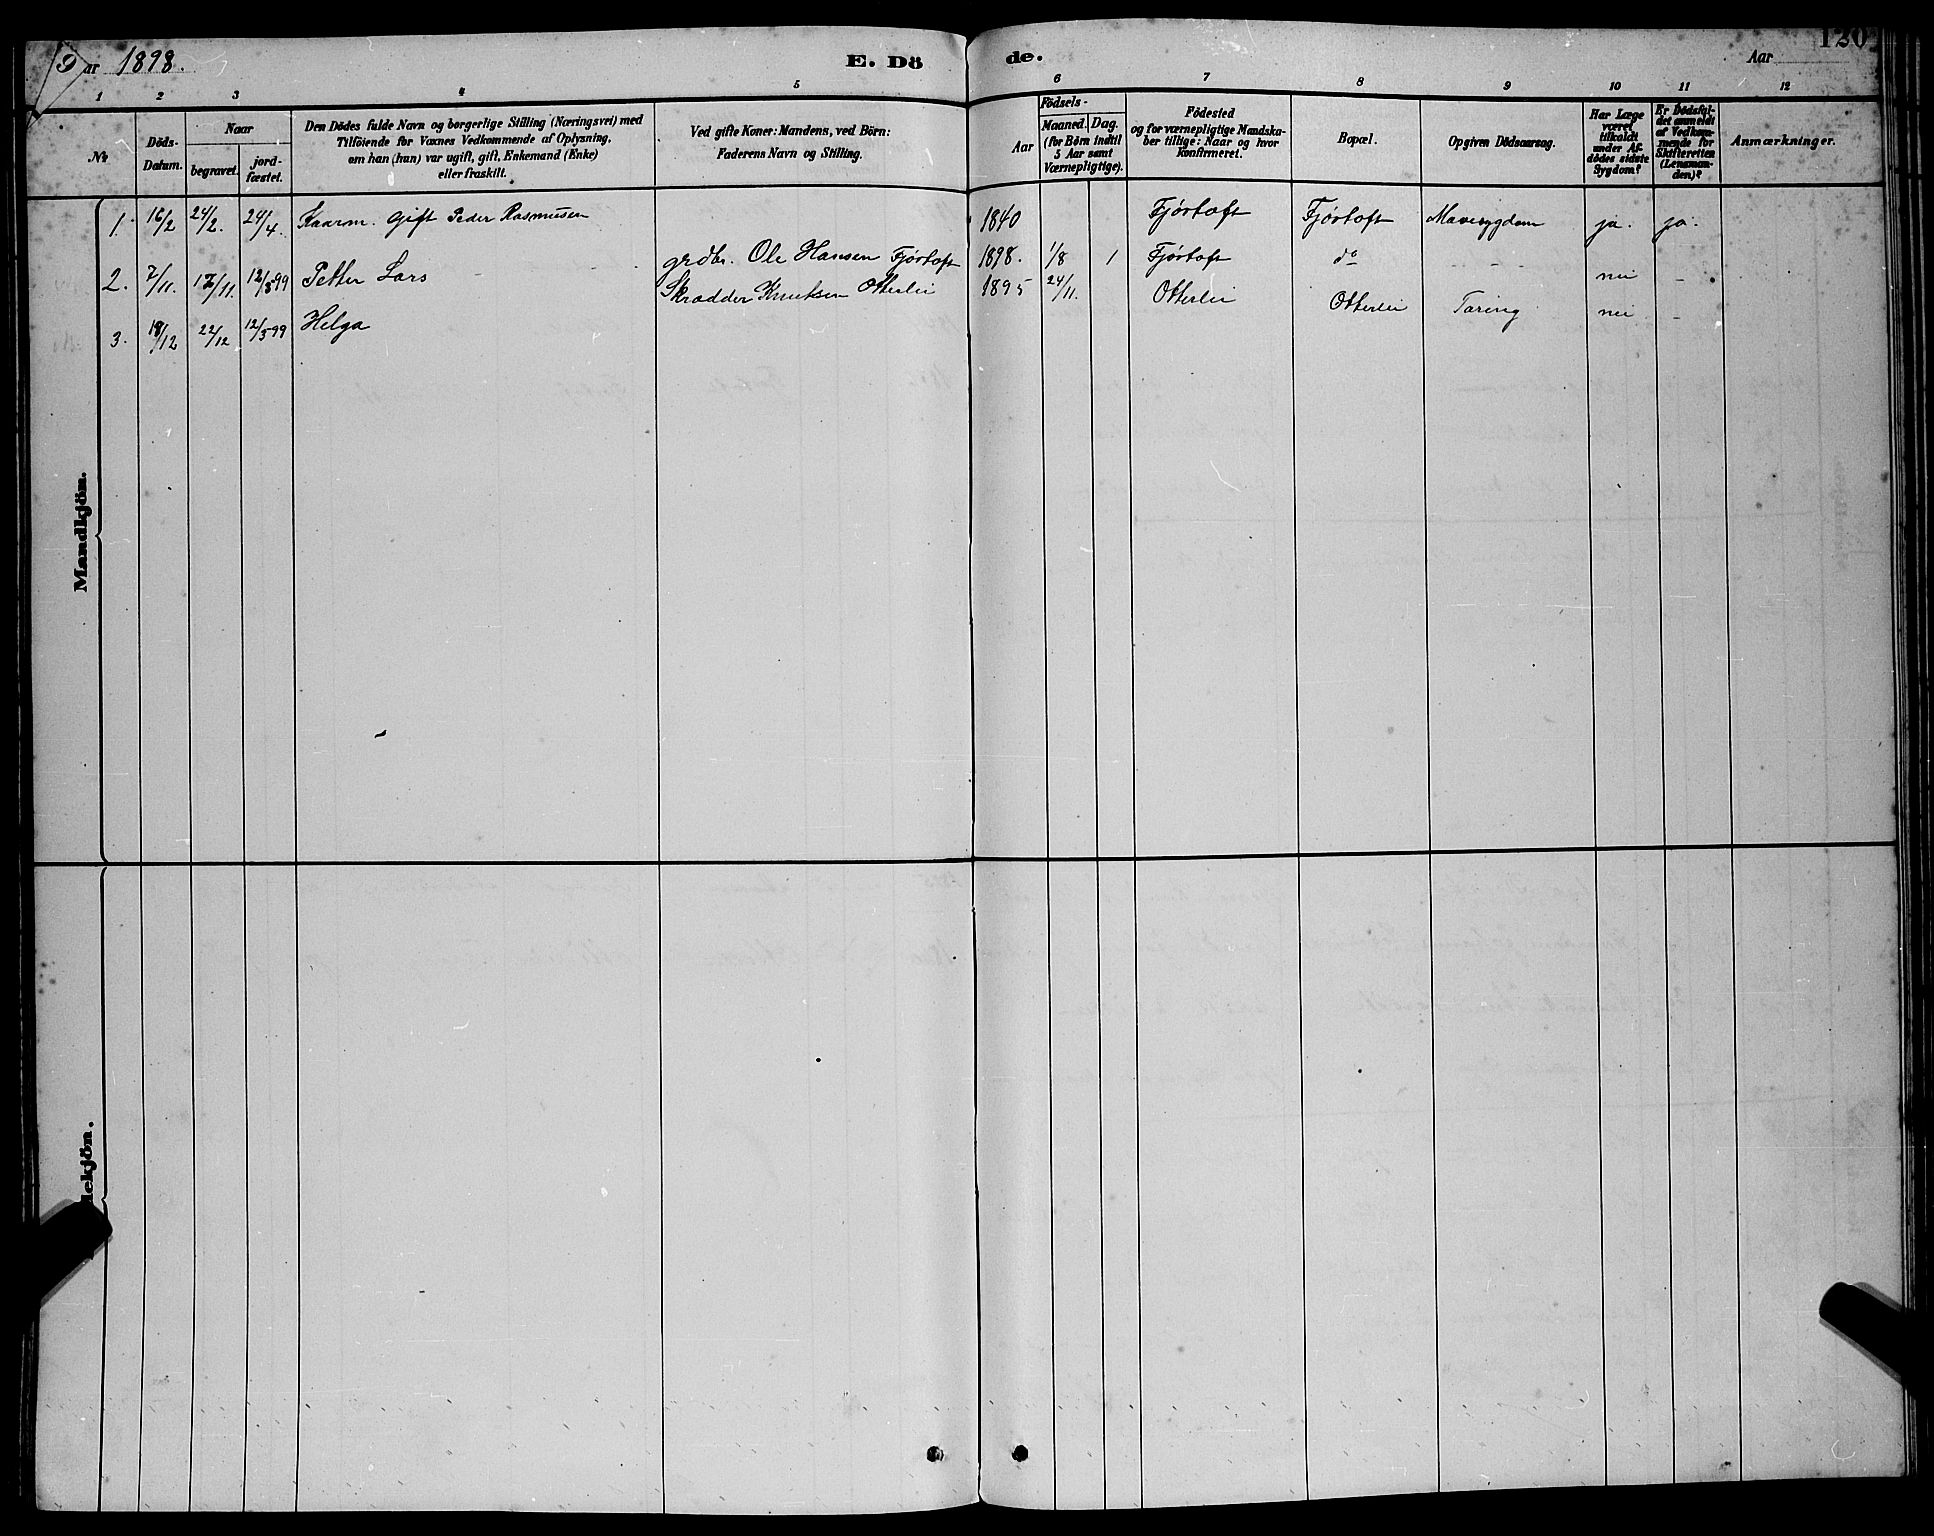 Aar 1898. E. Dö de. Aar 120
1 2 3 4 5 6 7 8 9 10 11 12
No
Döds-Datum.
Naar
begravet. jord-fæstet.
Den Dödes fulde Navn og borgerlige Stilling (Næringsvei) med
Tilföiende for Voxnes Vedkommende af Oplysning,
om han (hun) var ugift, gift, Enkemand (Enke)
eller fraskilt.
Ved gifte Koner: Mandens, ved Börn:
Faderens Navn og Stilling.
Födsels-
Aar Maaned. Dag.
(for Börn indtil
5 Aar samt
Værnepligtige).
Födested
og for værnepligtige Mandska-
ber tillige: Naar og hvor
konfirmeret.
Bopæl.
Opgiven Dödsaarsag.
Har Læge
været
tilkaldt
under Af-
dödes sidste
Sygdom?
Er Dödsfal-
det anmeldt
af Vedkom-
mende for
Skifteretten
(Lensman-
den)?
Anmærkninger.
Mandkjön.
1. 16/2 24/2. 24/4. Kaarm. gift Peder Rasmusen 1840 Fjörtoft Fjörtoft Mavesygdom ja. ja.
2. 7/11. 12/11. 12/5-99 Petter Lars grdbr. Ole Hansen Fjörtoft 1898. 1/8 1 Fjörtoft do - - - nei -
3. 18/12 22/12 12/5-99 Helga Skrædder Knutsen Otterlei 1895 24/11. Otterlei Otterlei Tæring nei -
dekjön.